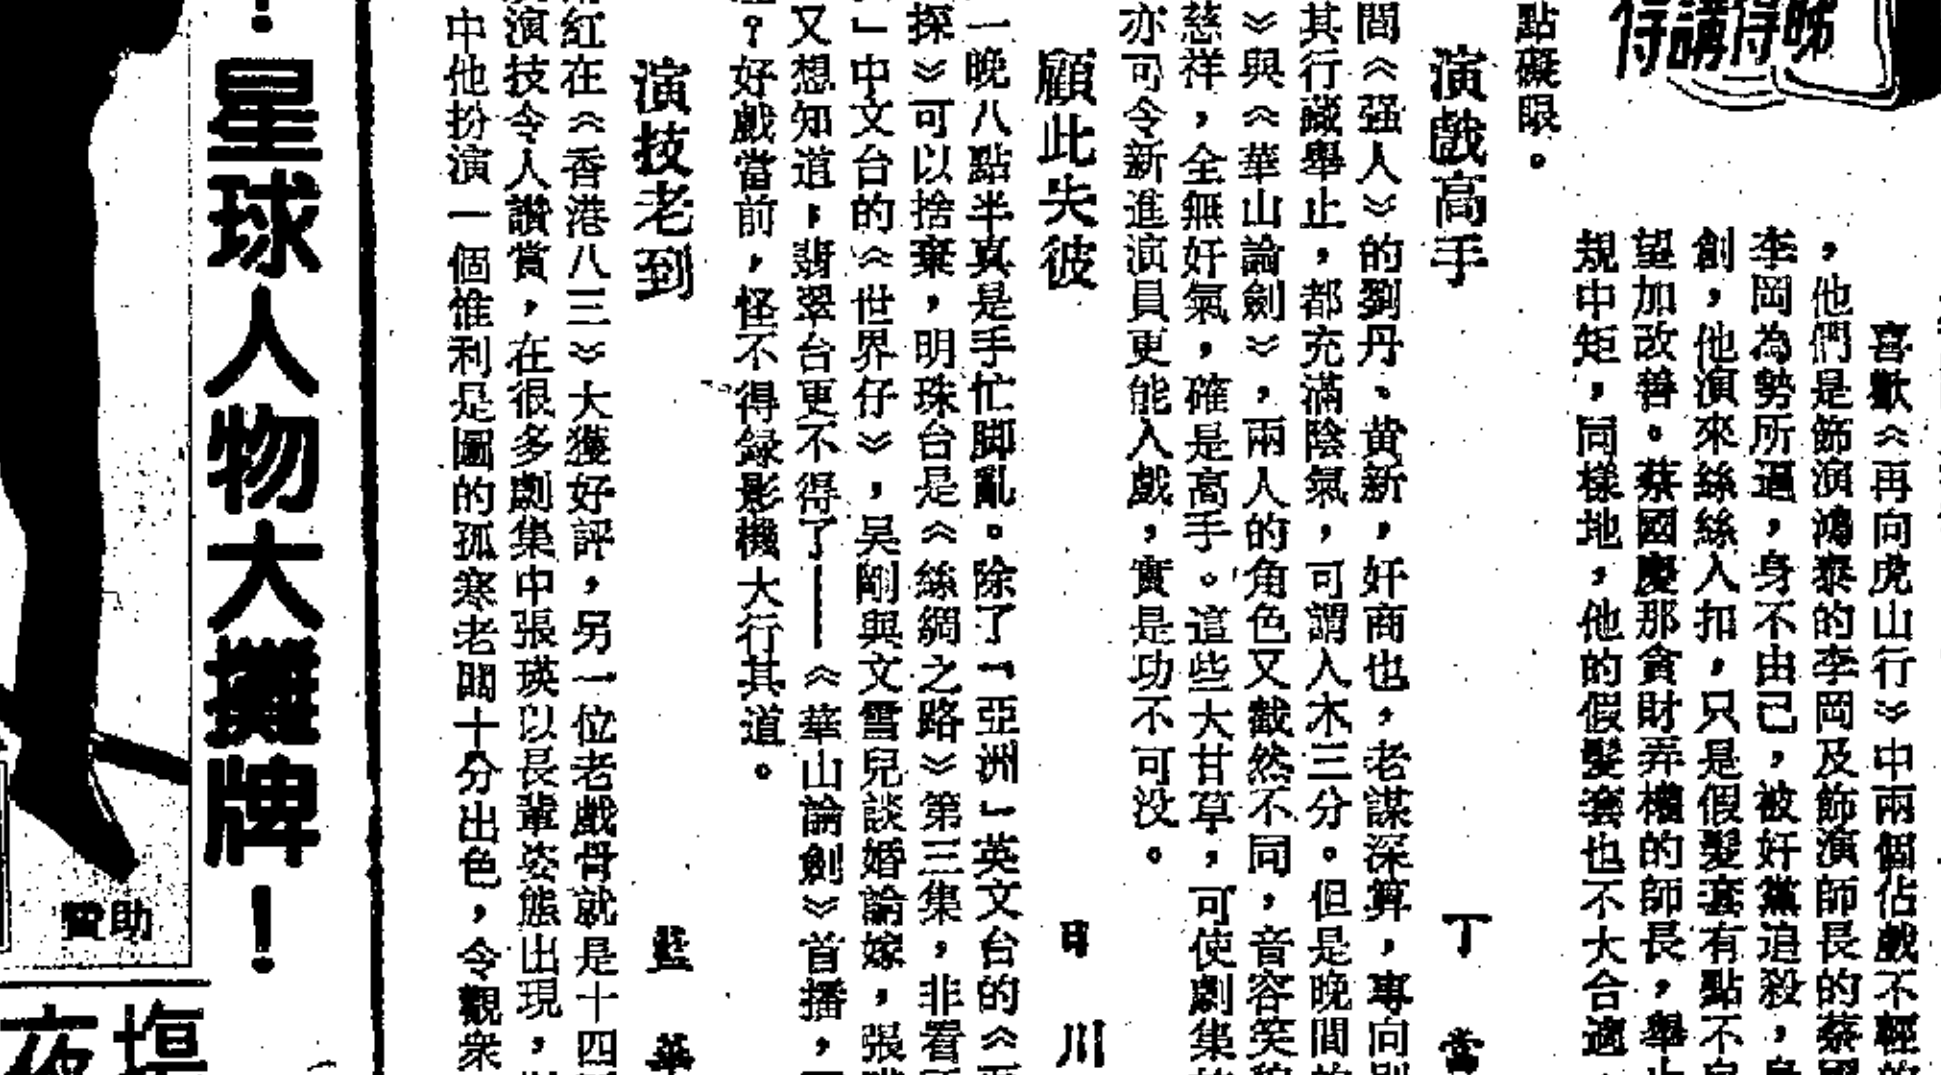 得講得睇
喜歡《再向虎山行》中兩個佔戲不輕的
，他們是飾演鴻泰的李岡及飾演師長的蔡國
李岡為勢所逼，身不由己，被奸黨追殺，身
創，他演來絲絲入扣，只是假髮套有點不自
望加改善。蔡國慶那貪財弄權的師長，舉止
規中矩，同樣地，他的假髮套也不大合適，
點礙眼。
演戲高手
丁 當
間《强人》的劉丹、黃新，奸商也，老謀深算，專向別
其行藏舉止，都充滿陰氣，可謂入木三分。但是晚間的
》與《華山論劍》，兩人的角色又截然不同，音容笑貌
慈祥，全無奸氣，確是高手。這些大甘草，可使劇集
亦可令新進演員更能入戲，實是功不可没。
顧此失彼
日 川
一晚八點半真是手忙脚亂。除了「亞洲」英文台的《
探》可以捨棄，明珠台是《絲綢之路》第三集，非看
」中文台的《世界仔》，吴剛與文雪兒談婚論嫁，張
又想知道；翡翠台更不得了——《華山論劍》首播，
？好戲當前，怪不得録影機大行其道。
演技老到
藍 華
紅在《香港八三》大獲好評，另一位老戲骨就是十四
演技令人讚賞，在很多劇集中張瑛以長輩姿態出現，
中他扮演一個惟利是圖的孤寒老闆十分出色，令觀衆
！星球人物大攤牌！
贊助
塩
夜